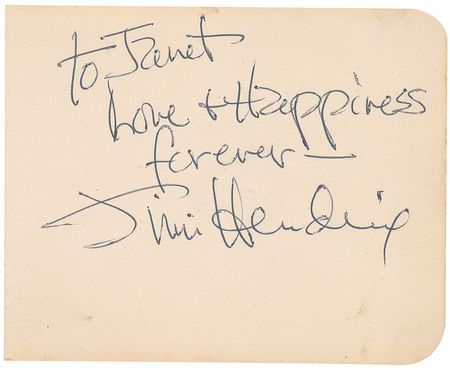 To Janet
Love + Happiness
forever —
Jimi Hendrix